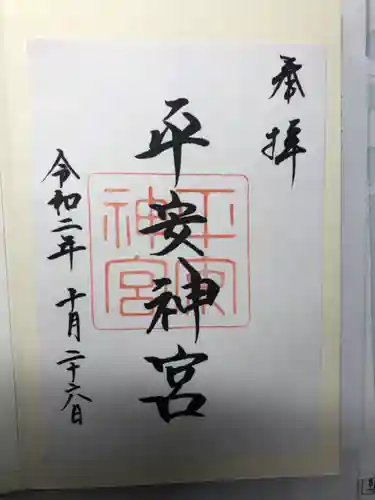 奉拝
平安神宮
平安神宮
令和二年十月二十六日